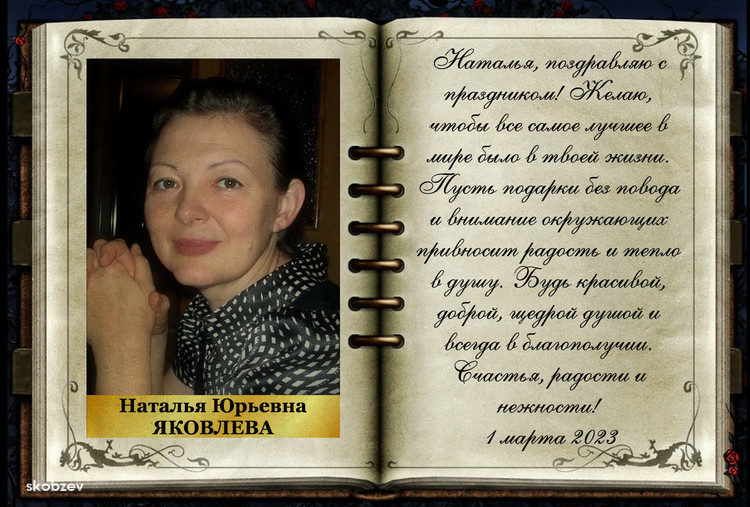 Наталья Юрьевна
ЯКОВЛЕВА
Наталья, поздравляю с
праздником! Желаю,
чтобы все самое лучшее в
мире было в твоей жизни.
Пусть подарки без повода
и внимание окружающих
привносит радость и тепло
в душу. Будь красивой,
доброй, щедрой душой и
всегда в благополучии.
Счастья, радости и
нежности!
1 марта 2023
skobzev